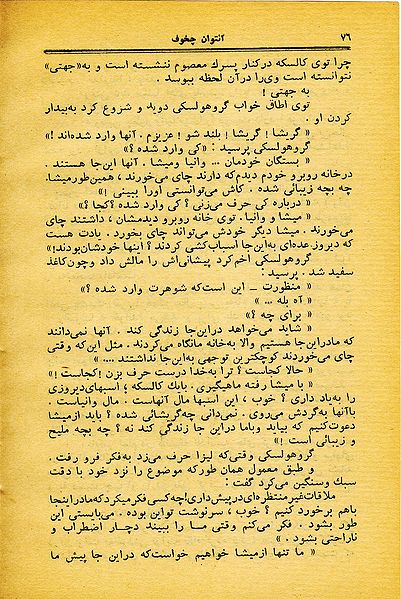 ۷۶
آنتوان چخوف
چرا توی کالسکه درکنار پسرک معصوم ننشسته است و به«جهتی»
نتوانسته است وی‌را درآن لحظه ببوسد .
به جهتی !
توی اطاق خواب گروهولسکی دوید و شروع کرد به‌بیدار
کردن او .
« گریشا ! گریشا ! بلند شو ! عزیزم . آنها وارد شده‌اند !»
گروهولسکی پرسید : «کی وارد شده ؟»
« بستگان خودمان ... وانیا ومیشا . آنها این‌جا هستند .
درخانه روبرو خودم دیدم‌که دارند چای می‌خورند ، همین‌طورمیشا.
چه بچه زیبائی شده . کاش می‌توانستی اورا ببینی !»
« درباره کی حرف می‌زنی ؟ کی وارد شده ؟کجا ؟»
« میشا و وانیا . توی خانه روبرو دیدمشان ، داشتند چای
می‌خورند . میشا دیگر خودش می‌تواند چای بخورد . یادت هست
که دیروز.عده‌ای به‌این‌جا اسباب‌کشی کردند ؟ اینها خودشان‌بودند!»
گروهولسکی اخم‌کرد پیشانی‌اش را مالش داد وچون‌کاغذ
سفید شد . پرسید :
« منظورت ـ این است‌که شوهرت وارد شده ؟»
« آه بله ... »
« برای چه ؟»
« شاید می‌خواهد دراین‌جا زندگی کند . آنها نمی‌دانند
که مادراین‌جا هستیم والا به‌خانه مانگاه می‌کردند . مثل این‌که وقتی
چای می‌خوردند کوچکترین توجهی به‌این‌جا نداشتند .... »
« حالا کجاست ؟ ترا به‌خدا درست حرف بزن !کجاست !»
« با میشا رفته ماهیگیری . بایک کالسکه ، اسبهای‌دیروزی
را به‌یاد داری ؟ خوب ، این اسبها مال آنهاست . مال وانیاست .
باآنها به‌گردش می‌روی . نمی‌دانی چه‌گریشائی شده ؟ باید ازمیشا
دعوت‌کنیم که بیاید وباما در این جا زندگی کند نه ؟ چه بچه ملیح
و زیبائی است !»
گروهولسکی وقتی‌که لیزا حرف می‌زد به‌فکر فرو رفت .
و طبق معمول همان طورکه موضوع را نزد خود با دقت
سبک وسنگین می‌کرد گفت :
ملاقات‌غیرمنتظره‌ای‌درپیش‌داری!چه‌کسی‌فکرمیکردکه‌مادراینجا
باهم برخورد کنیم ؟ خوب ، سرنوشت تواین‌بوده . می‌بایستی این
طور بشود . فکر می‌کنم وقتی مـا را ببیند دچـار اضطراب و
ناراحتی بشود . »
« ما تنها ازمیشا خواهیم خواست‌که دراین جا پیش ما